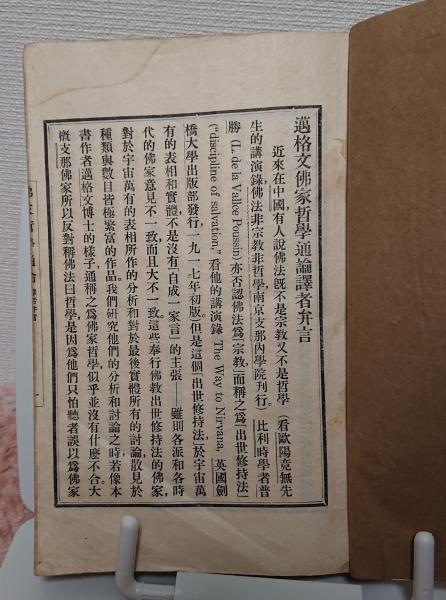 邁格文佛家哲學通論譯者弁言
近來在中國有人說佛法旣不是宗教又不是哲學(看歐陽竟無先
生的講演錄佛法非宗教非哲學南京支那內學院刊行)比利時學者普
勝(L. de la Vallée Poussin)亦否認佛法爲「宗教」而稱之爲「出世修持法」
("discipline of salvation,"看他的講演錄 The Way to Nirvana, 英國劍
橋大學出版部發行,一九一七年初版)但是這個「出世修持法」於宇宙萬
有的表相和實體,不是沒有「自成一家言」的主張——雖則各派和各時
代的佛家意見不一致而且大不一致。這些奉行佛教出世修持法的佛家,
對於宇宙萬有的表相所作的分析和對於最後實體所有的討論,散見於
種類與數目皆極繁富的作品。我們研究他們的分析和討論之時,若像本
書作者邁格文博士的樣子,通稱之爲佛家哲學,似乎並沒有什麼不合。大
概支那佛家所以反對稱佛法曰哲學,是因爲他們只怕聽者誤以爲佛家